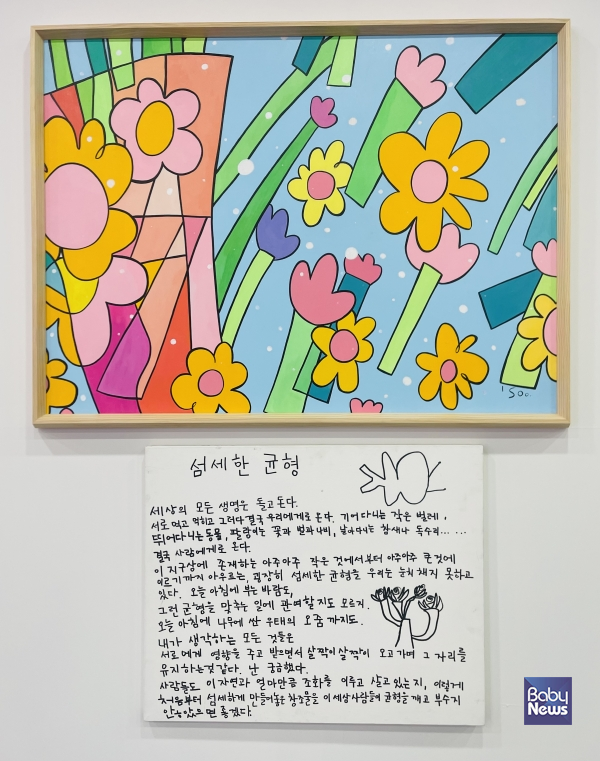 'Soo.
섬세한 균형
세상의 모든 생명은 돌고 돈다.
서로 먹고 먹히고 그러다 결국 우리에게로 온다. 기어다니는 작은 벌레,
뛰어다니는 동물, 팔랑이는 꽃과 벌과 나비, 날아다니는 참새나 독수리... ...
결국 사람에게로 온다.
이 지구상에 존재하는 아주아주 작은 것에서부터 아주아주 큰것에
이르기까지 아우르는, 굉장히 섬세한 균형을 우리는 눈치 채지 못하고
있다. 오늘 아침에 부는 바람도,
그런 균형을 맞추는 일에 관여할지도 모르지.
오늘 아침에 나무에 싼 우태의 오줌 까지도.
내가 생각하는 모든 것들은
서로에게 영향을 주고 받으면서 살짝이 살짝이 오고 가며 그 자리를
유지하는것 같다. 난 궁금했다.
사람들도 이 자연과 얼마만큼 조화를 이루고 살고 있는지, 이렇게
처음부터 섬세하게 만들어놓은 창조물을 이 세상사람들이 균형을 깨고 부수지
않았으면 좋겠다.
Baby
News